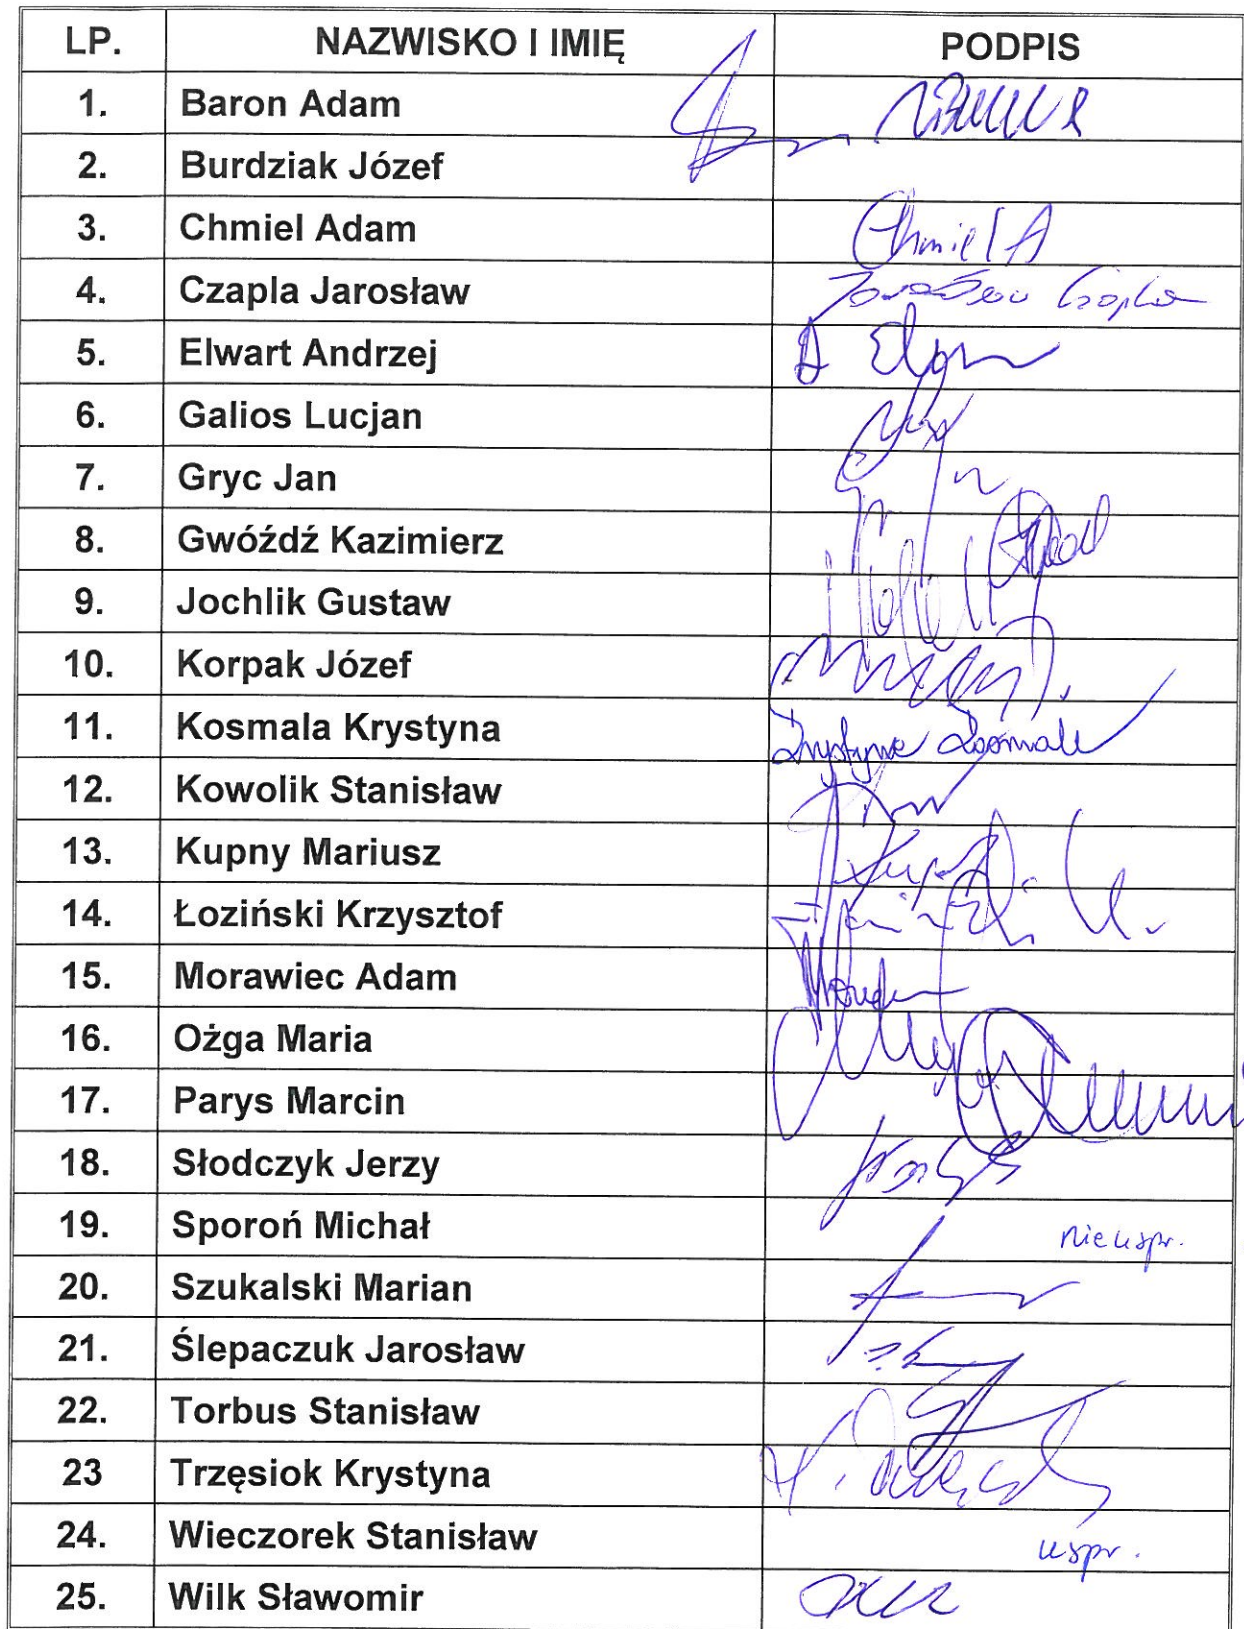 LP. NAZWISKO I IMIĘ PODPIS
1. Baron Adam
2. Burdziak Józef
3. Chmiel Adam Chmiel A
4. Czapla Jarosław Jarosław Czapla
5. Elwart Andrzej
6. Galios Lucjan
7. Gryc Jan
8. Gwóźdź Kazimierz
9. Jochlik Gustaw
10. Korpak Józef
11. Kosmala Krystyna Krystyna Kosmala
12. Kowolik Stanisław
13. Kupny Mariusz
14. Łoziński Krzysztof
15. Morawiec Adam
16. Ożga Maria
17. Parys Marcin
18. Słodczyk Jerzy
19. Sporoń Michał nieuspr.
20. Szukalski Marian
21. Ślepaczuk Jarosław
22. Torbus Stanisław
23 Trzęsiok Krystyna
24. Wieczorek Stanisław uspr.
25. Wilk Sławomir